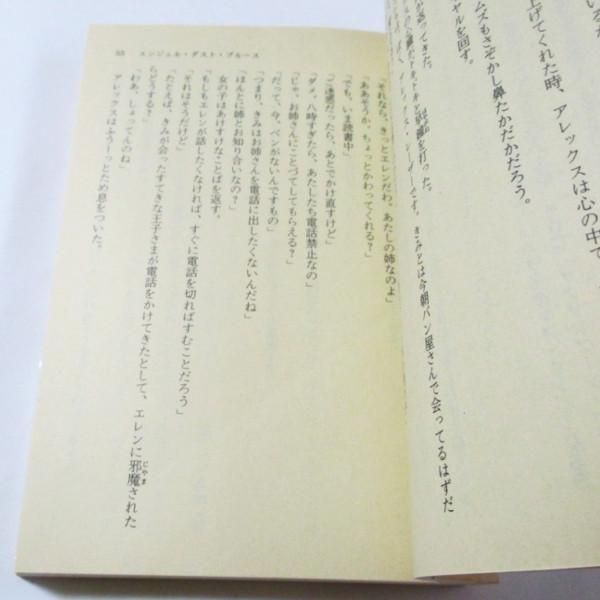 いるが
上げてくれた時、アレックスは心の中で
ムズもさぞかし鼻たかだかだろう。
ヤルを回す。
が返ってきた。
を打った。
です。きみとは今朝パン屋さんで会ってるはずだ
55 エンジェル・ダスト・ブルース
「それなら、きっとエレンだわ。あたしの姉なのよ」
「ああそうか。ちょっとかわってくれる?」
「でも、いま読書中」
「ご迷惑だったら、あとでかけ直すけど」
「ダメ。八時すぎたら、あたしたち電話禁止なの」
「じゃ、お姉さんにことづてしてもらえる?」
「だって、今、ペンがないんですもの」
「つまり、きみはお姉さんを電話に出したくないんだね」
「ほんとに姉とお知り合いなの?」
女の子はあけすけなことばを返す。
「もしもエレンが話したくなければ、すぐに電話を切ればすむことだろう」
「それはそうだけど」
「たとえば、きみが会ったすてきな王子さまが電話をかけてきたとして、エレンに邪魔された
らどうする?」
「わあ、しょってんのね」
アレックスはふうーっとため息をついた。